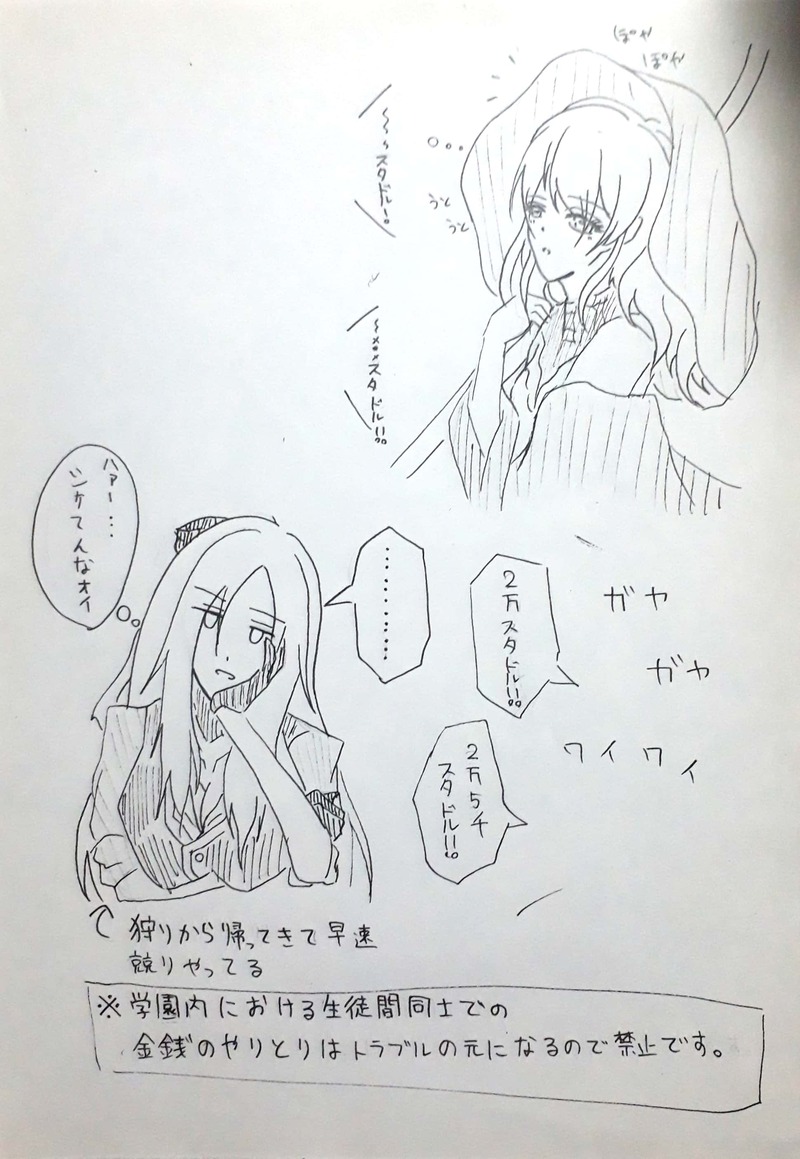 ぽや
ぽや
〜〜スタドル!。
うと
うと
〜〜×××スタドル!!。
ハァー・・・
シケてんなオイ
・・・・・・・・・・
2万スタドル!!。
ガヤ
ガヤ
2万5千
スタドル!!。
ワイワイ
狩りから帰ってきて早速
競りやってる
※学園内における生徒間同士での
金銭のやりとりはトラブルの元になるので禁止です。